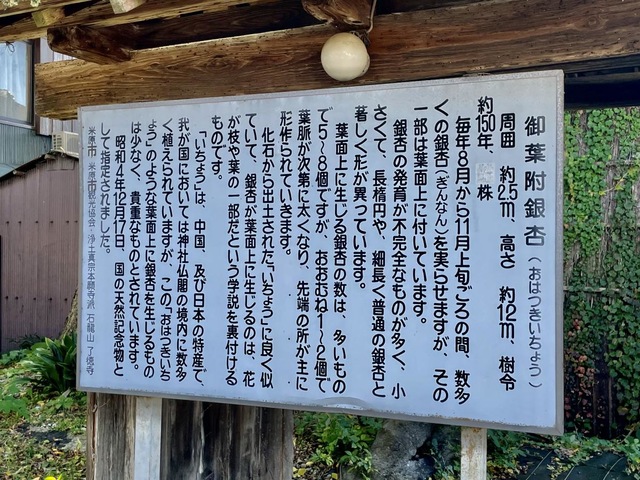 御葉附銀杏(おはつきいちょう)
周囲 約2.5m、高さ 約12m、樹令
約150年、 株
毎年8月から11月上旬ごろの間、数多
くの銀杏(ぎんなん)を実らせますが、その
一部は葉面上に付いています。
銀杏の発育が不完全なものが多く、小
さくて、長楕円や、細長く普通の銀杏と
著しく形が異っています。
葉面上に生じる銀杏の数は、多いもの
で5〜8個ですが、おおむね1〜2個で
葉脈が次第に太くなり、先端の所が主に
形作られていきます。
化石から出土された「いちょう」に良く似
ていて、銀杏が葉面上に生じるのは、花
が枝や葉の一部だという学説を裏付ける
ものです。
「いちょう」は、中国、及び日本の特産で、
我が国においては神社仏閣の境内に数多
く植えられていますが、この「おはつきいち
ょう」のような葉面上に銀杏を生じるもの
は少なく、貴重なものとされています。
昭和4年12月17日、国の天然記念物と
して指定されました。
米原市 米原市観光協会・浄土真宗本願寺派 石龍山 了徳寺